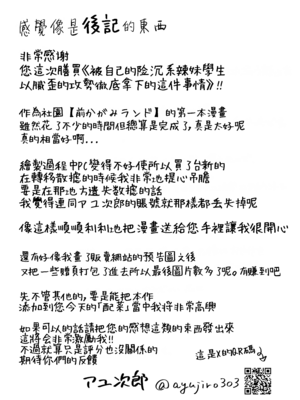 感覺像是後記的東西
非常感謝
您這次購買《被自己的陰沉系辣妹學生
以臟歪的攻勢徹底拿下的這件事情》!!
作為社團【前かがみランド】的第一本漫畫
雖然花了不少的時間但總算是完成了,真是太好呢
真的相當好啊...
繪製過程中PC變得不好使所以買了台新的
在轉移數據的時候我非常地提心吊膽
要是在那地方遺失數據的話
我覺得連同アユ次郎的賬號就那樣都丟失掉呢
像這樣順順利利地把漫畫送給您手裡讓我很開心
還有好像我畫了販賣網站的預告圖之後
又把一些贈頁打包了進去所以最後圖片數多了呢。有賺到吧
先不管其他的,要是能把本作
添加到您今天的「配菜」當中我將非常高興
如果可以的話請把您的感想這類的東西發出來
這將會非常激勵我!!
不過就算只是評分也沒關係的
期待你們的反饋
這是X的QR碼
アユ次郎 @ayujiro303